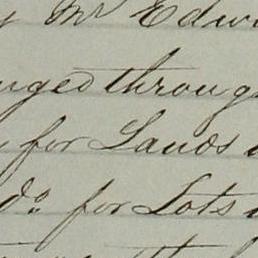 Mr Edw
nged throug
for Lands
do. for Lots